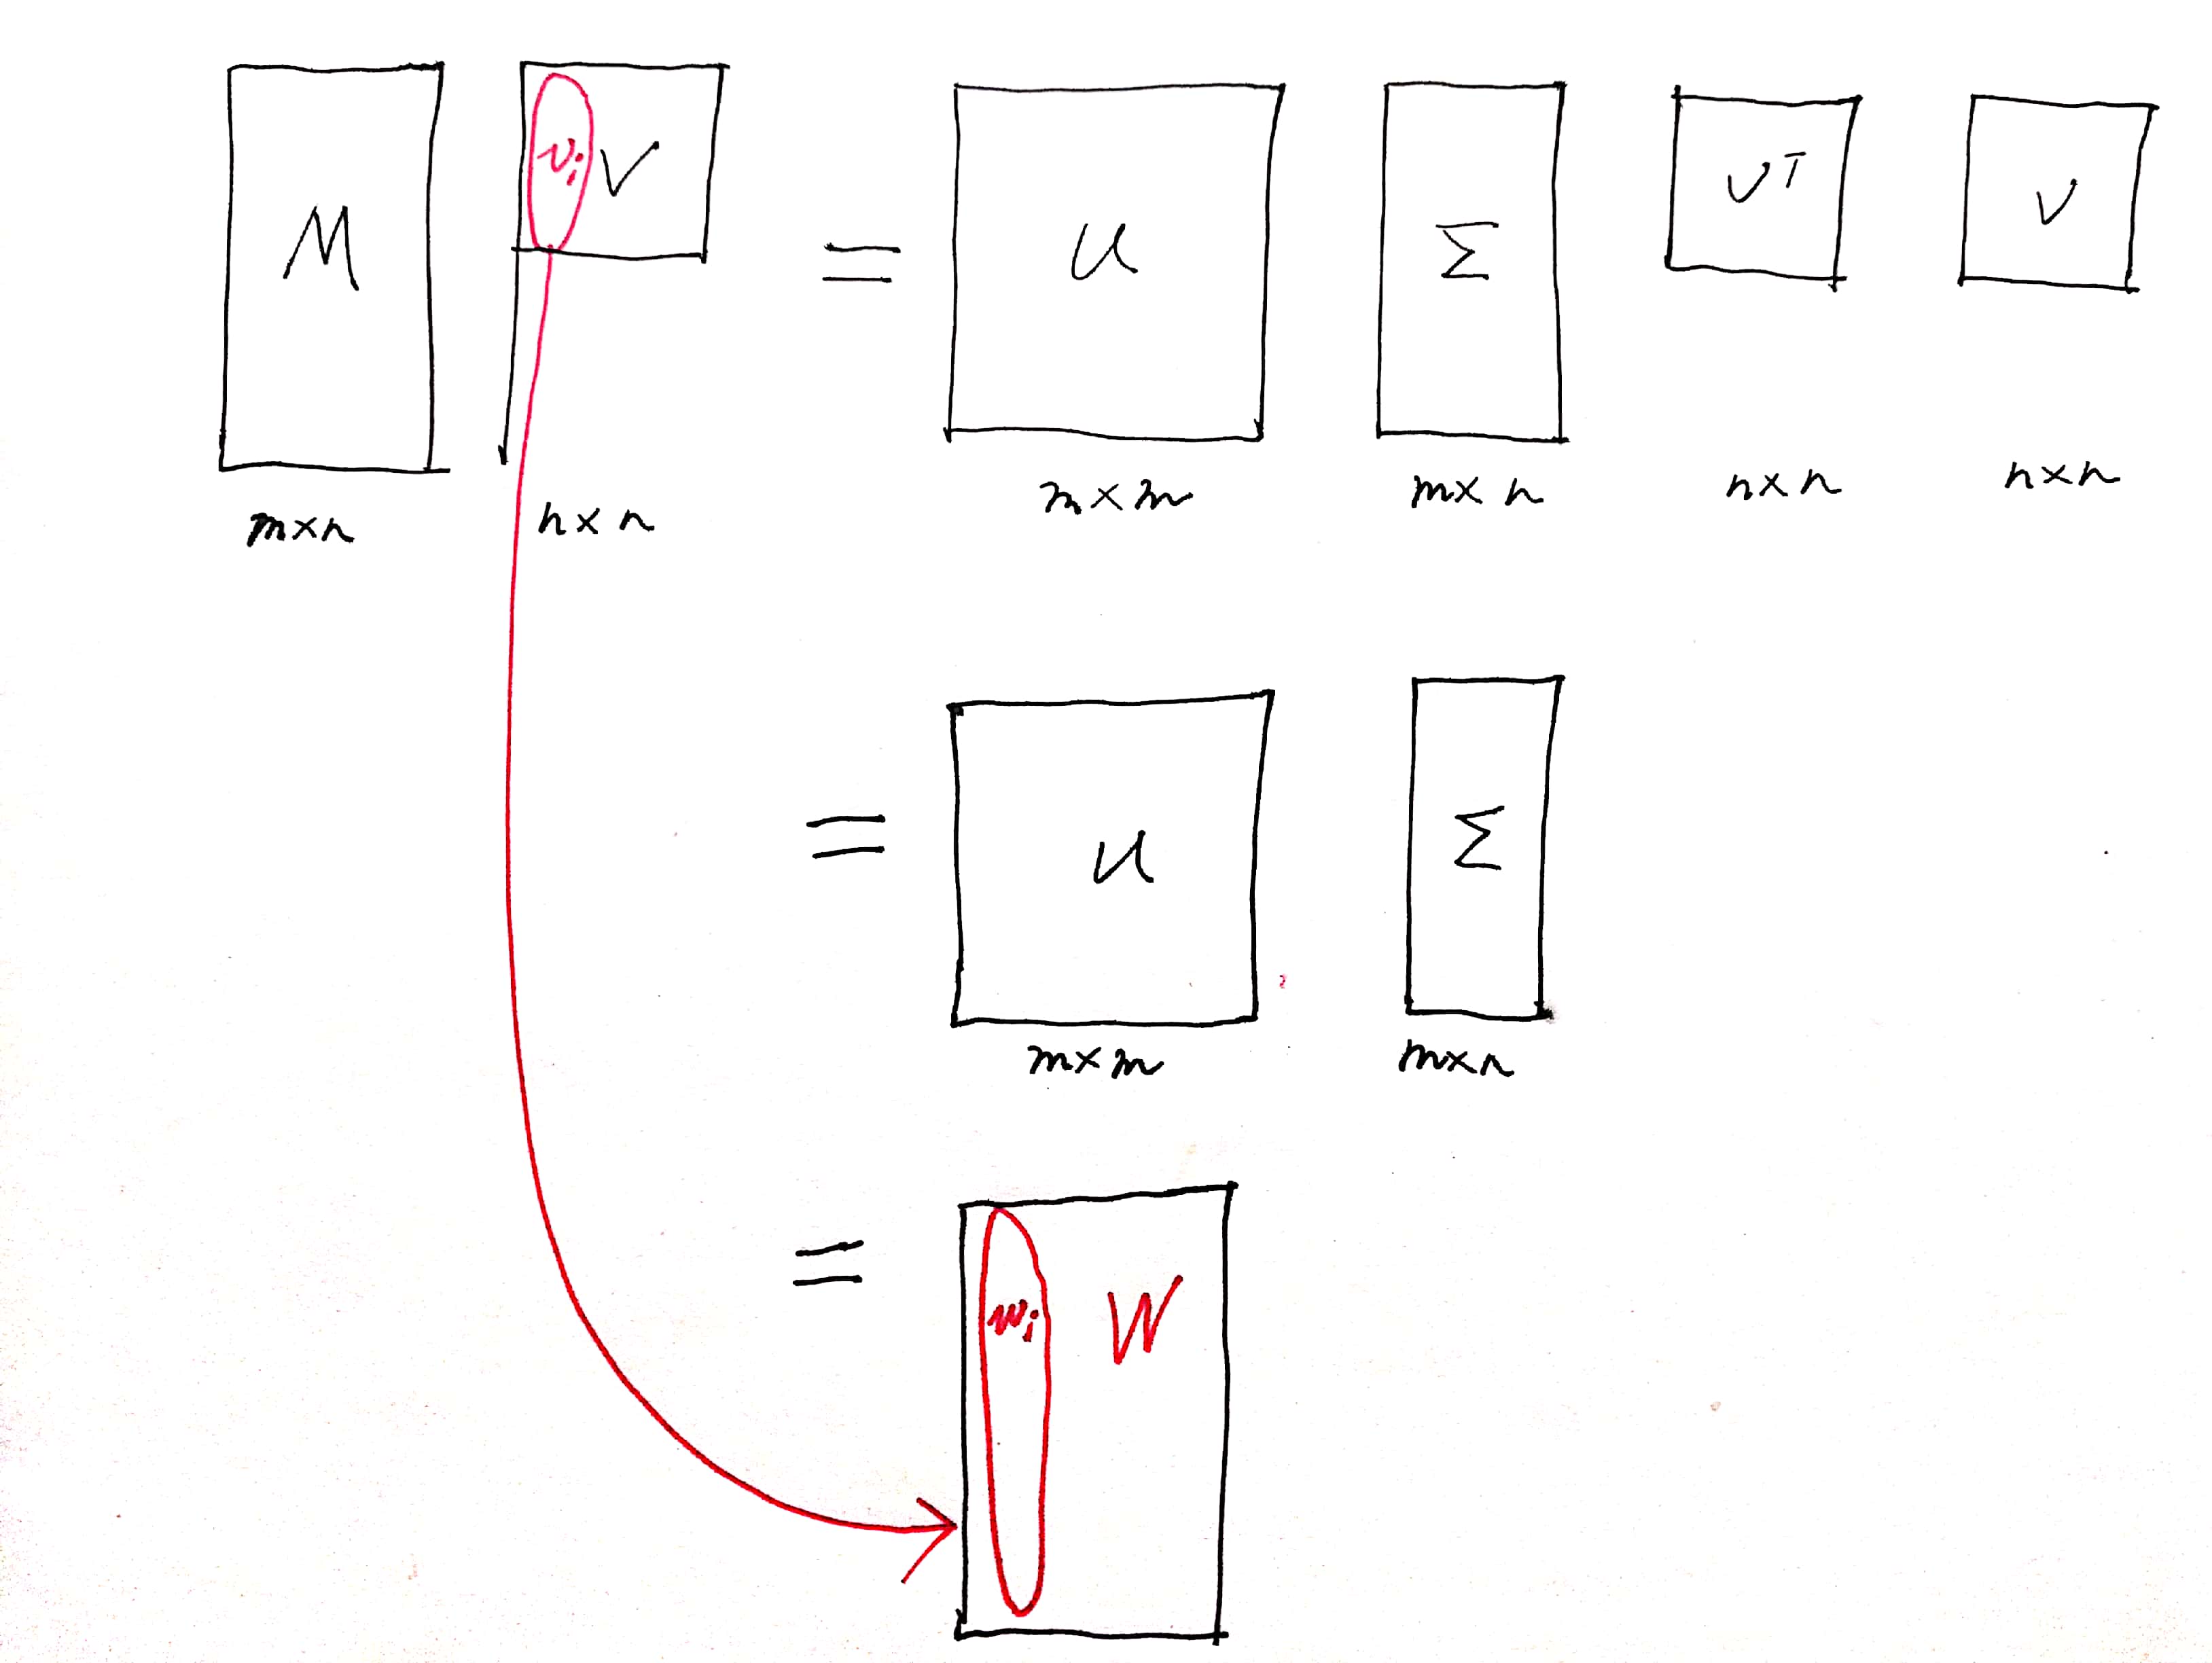 M v_i V = U Σ V^T V
m×n n×n m×m m×n n×n n×n
= U Σ
m×m m×n
= w_i W